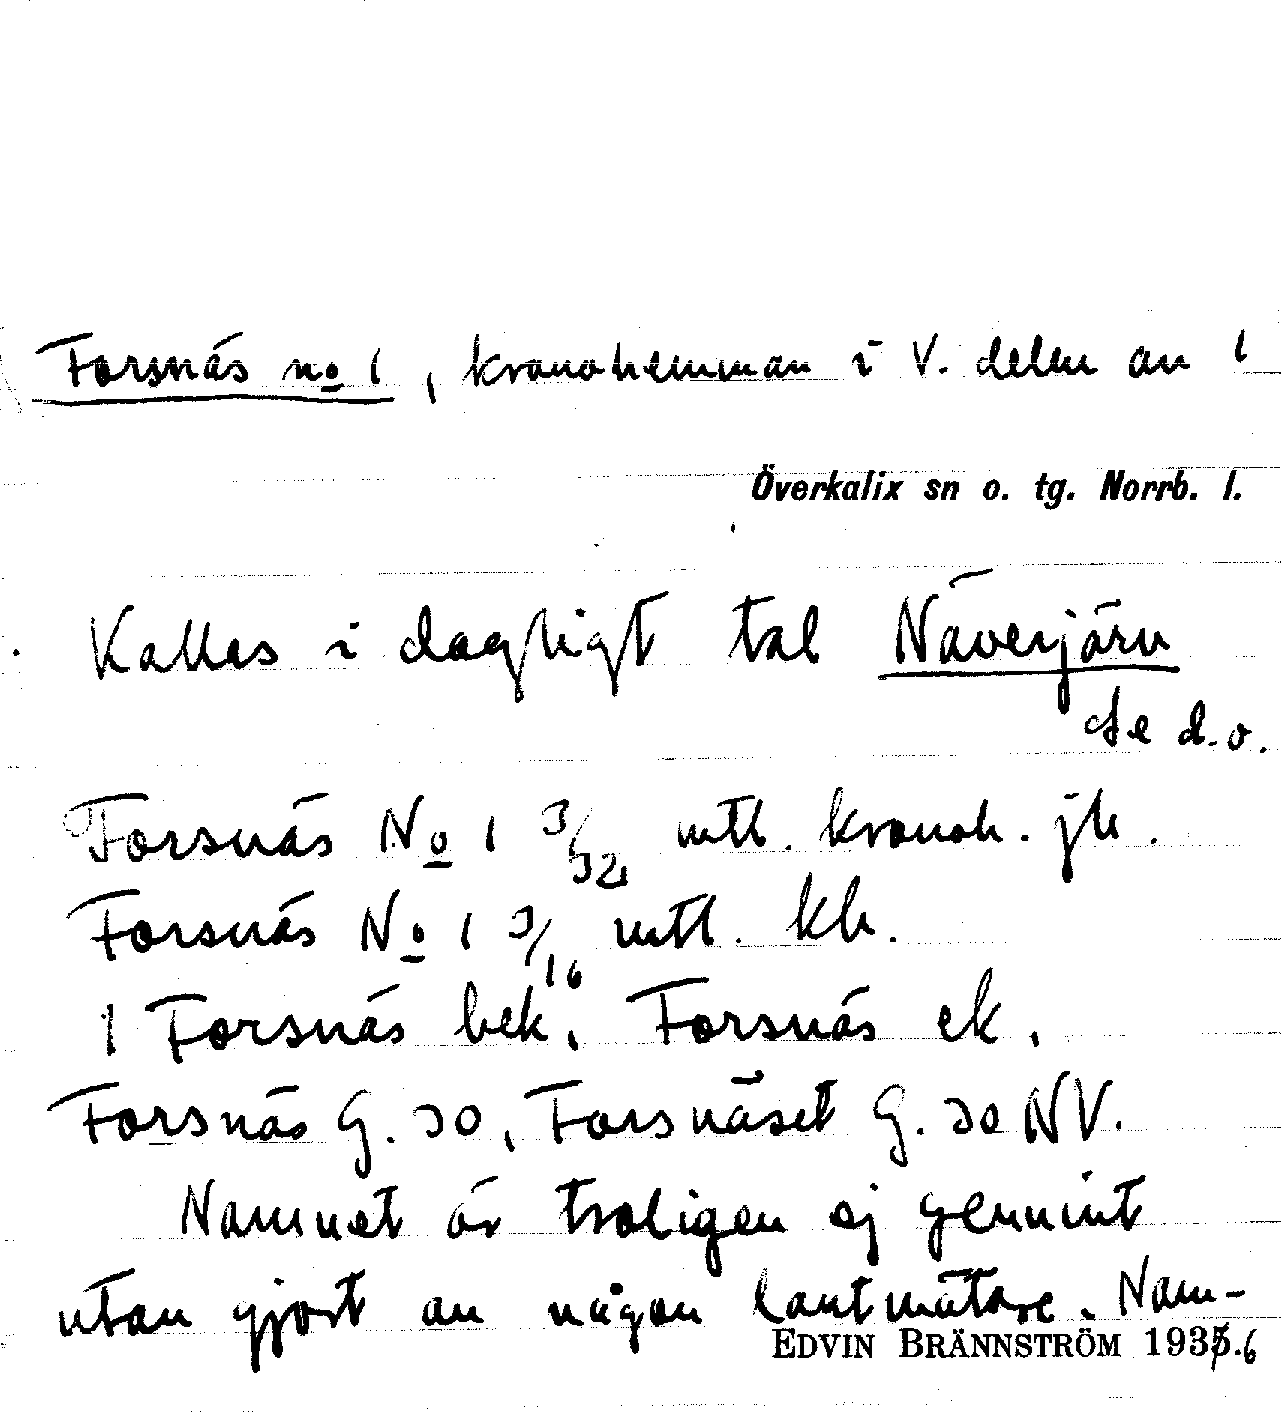 Forsnäs no 1, kronohemman i V. delen av
Överkalix sn o. tg. Norrb. l.
Kallas i dagligt tal Näverjärv
Se d.o.
Forsnäs No 1 3/32 mtl. kronoh. jb.
Forsnäs No 1 3/16 mtl. kh.
1 Forsnäs bek, Forsnäs ek,
Forsnäs G. 30, Forsnäset G. 30 NV.
Namnet är troligen ej genuint
utan gjort av någon lantmätare. Nam-
EDVIN BRÄNNSTRÖM 1935.6